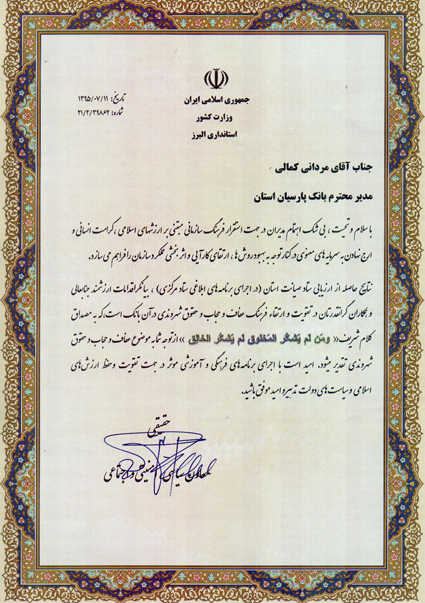 جمهوری اسلامی ایران
وزارت کشور
استانداری البرز
تاریخ: ۱۳۹۵/۰۷/۱۱
شماره: ۲۱/۲/۳۹۸۶۲
جناب آقای مردانی کمالی
مدیر محترم بانک پارسیان استان
با سلام و تحیت، بی شک اهتمام مدیران در جهت استقرار فرهنگ سازمانی مبتنی بر ارزشهای اسلامی، کرامت انسانی و
ارج نهادن به سرمایه های معنوی در کنار توجه به بهبود روش ها، ارتقای کارآیی و اثر بخشی عملکرد سازمان را فراهم می سازد.
نتایج حاصله از ارزیابی ستاد صیانت استان (در اجرای برنامه های ابلاغی ستاد مرکزی)، بیانگر اقدامات ارزشمند جنابعالی
و همکاران گرانقدرتان در تقویت و ارتقاء فرهنگ عفاف و حجاب و حقوق شهروندی در آن بانک است، که به مصداق
کلام شریف « ومَن لَم یَشکُر المَخلوق لَم یَشکُر الخالِق » از توجه شما به موضوع عفاف و حجاب و حقوق
شهروندی تقدیر میشود. امید است با اجرای برنامه های فرهنگی و آموزشی موثر در جهت تقویت و حفظ ارزش های
اسلامی و سیاست های دولت تدبیر و امید موفق باشید.
حقیقی
معاون سیاسی، امنیتی و اجتماعی